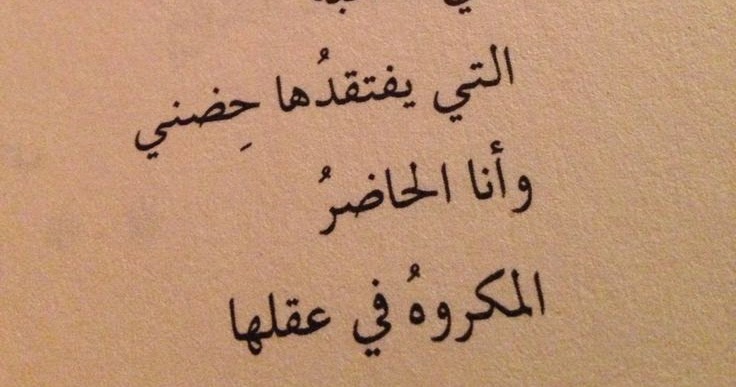 التي يفتقدُها حِضني
وأنا الحاضرُ
المكروهُ في عقلها